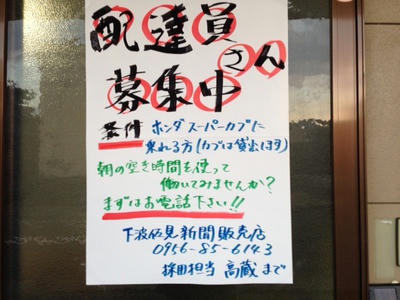 配達員さん
募集中
条件 ホンダスーパーカブに
乗れる方(カブは貸出します)
朝の空き時間を使って
働いてみませんか?
まずはお電話下さい!!
下波佐見新聞販売店
0956-85-6143
採用担当 高蔵まで